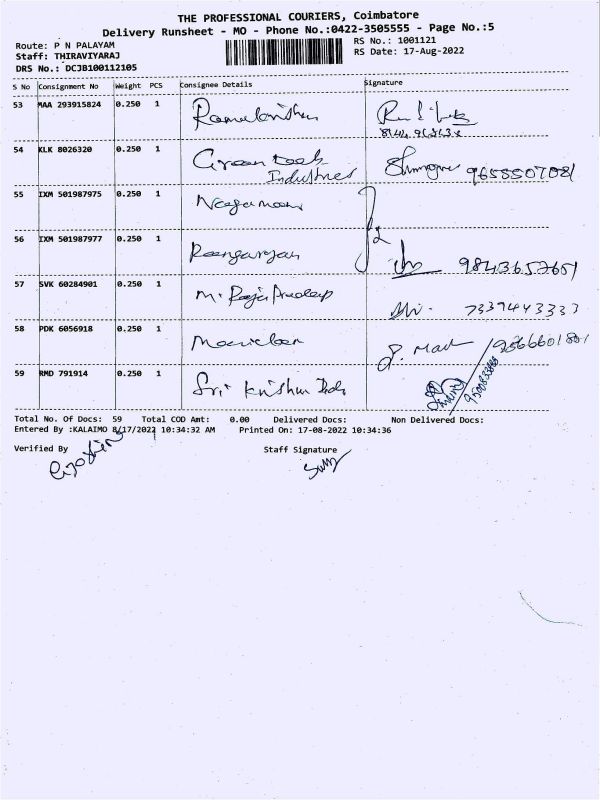 THE PROFESSIONAL COURIERS, Coimbatore
Delivery Runsheet - MO - Phone No.:0422-3505555 - Page No.:5
Route: P N PALAYAM
Staff: THIRAVIYARAJ
DRS No.: DCJB100112105
RS No.: 1001121
RS Date: 17-Aug-2022
S No Consignment No Weight PCS Consignee Details Signature
53 MAA 293915824 0.250 1 Ramakrishnan
54 KLK 8026320 0.250 1 Green Tech
Industries 9655507081
55 IXM 501987975 0.250 1 Nagamani
56 IXM 501987977 0.250 1 Rangarajan 9843652651
57 SVK 60284901 0.250 1 M. Raja Pradeep 7339443333
58 PDK 6056918 0.250 1
59 RMD 791914 0.250 1 Sri Krishna
Total No. Of Docs: 59 Total COD Amt: 0.00 Delivered Docs: Non Delivered Docs:
Entered By :KALAIMO 8/17/2022 10:34:32 AM Printed On: 17-08-2022 10:34:36
Verified By Staff Signature